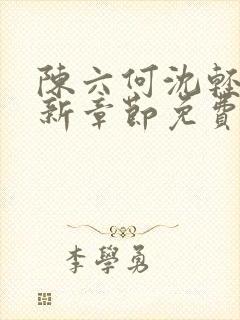 陳六何沈輕
新章節免費
李學勇